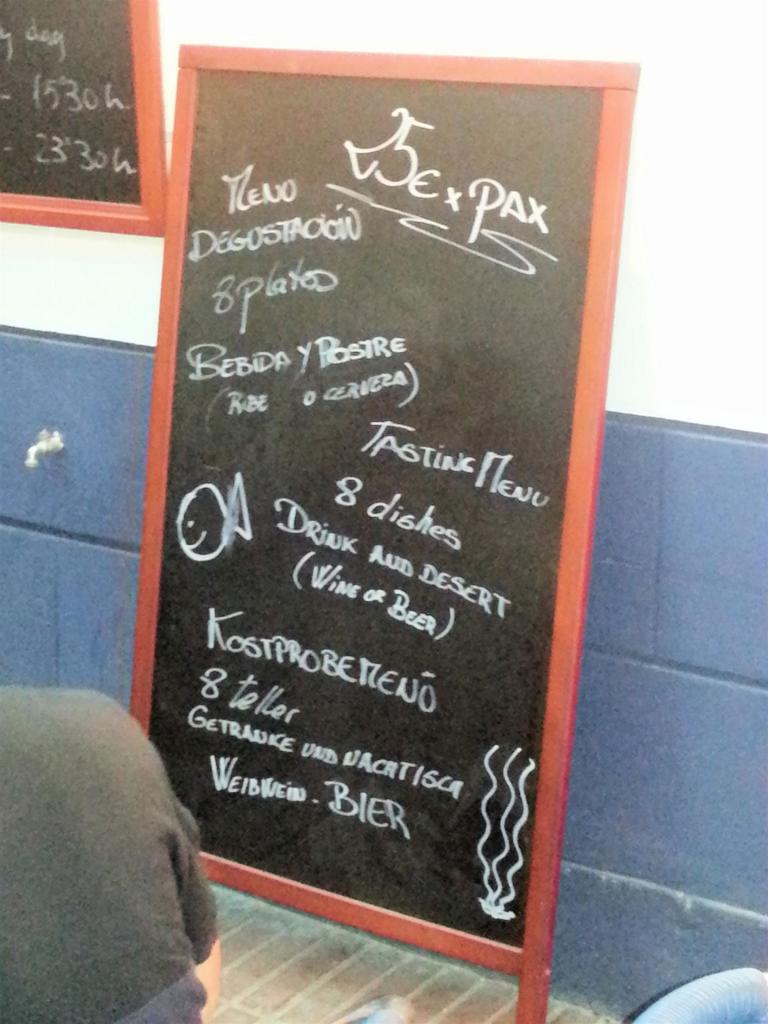 y day
- 15'30 h
- 23'30 h
25€ x PAX
MENU
DEGUSTACIÓN
8 platos
BEBIDA Y POSTRE
(RIBE O CERVEZA)
TASTING MENU
8 dishes
DRINK AND DESERT
(WINE OR BEER)
KOSTPROBEMENÜ
8 teller
GETRANKE UND NACHTISCH
WEIBWEIN - BIER